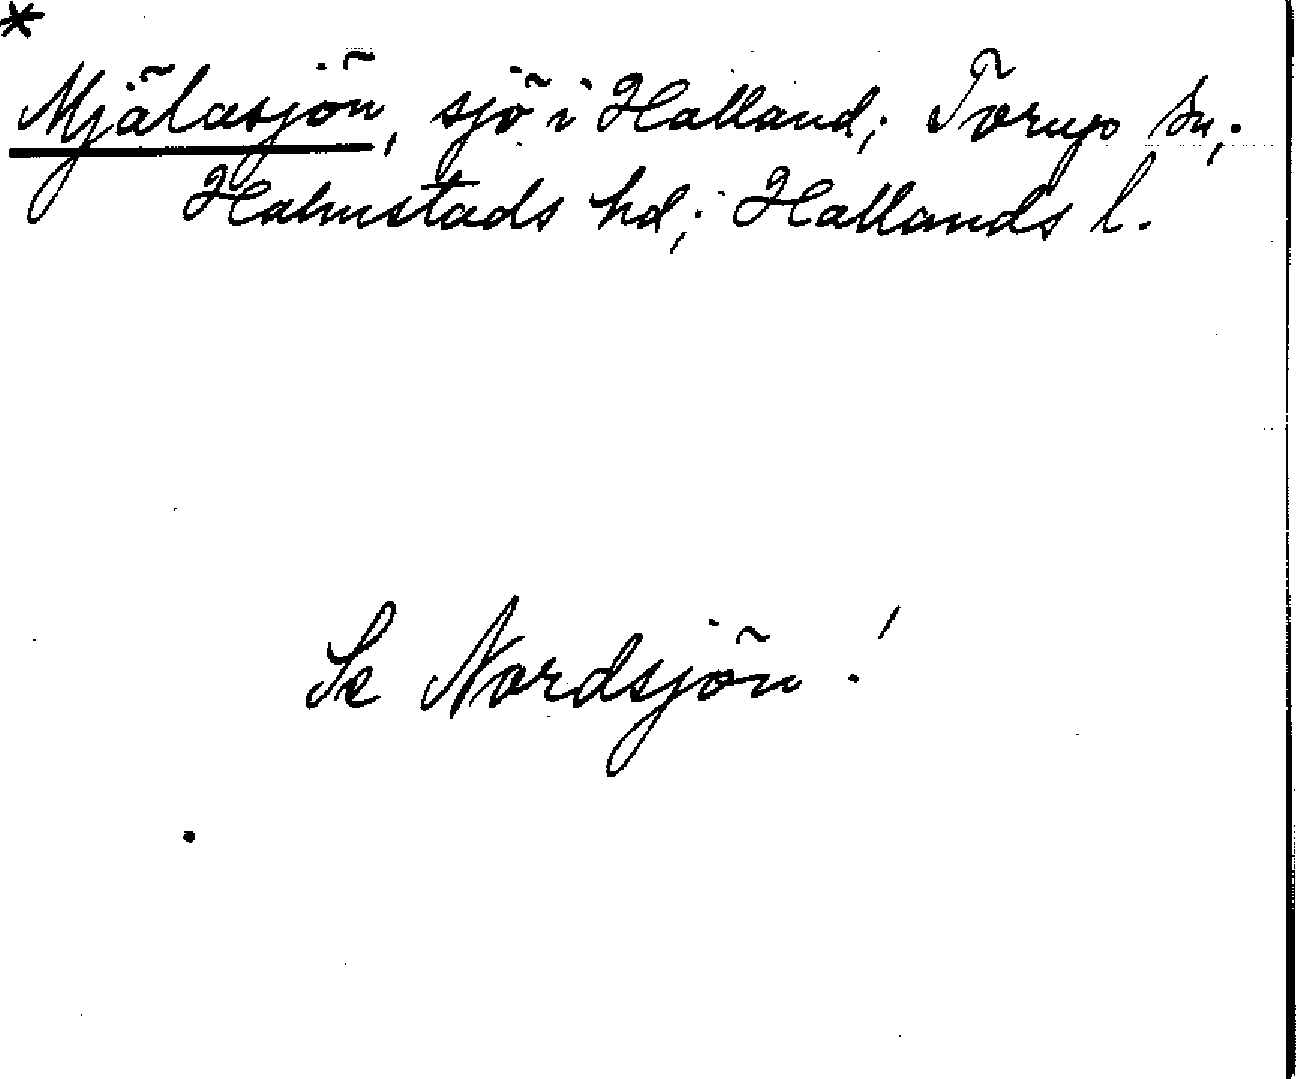 *
Mjälasjön, sjö i Halland; Torups sn;
Halmstads hd; Hallands l.
Se Nordsjön!